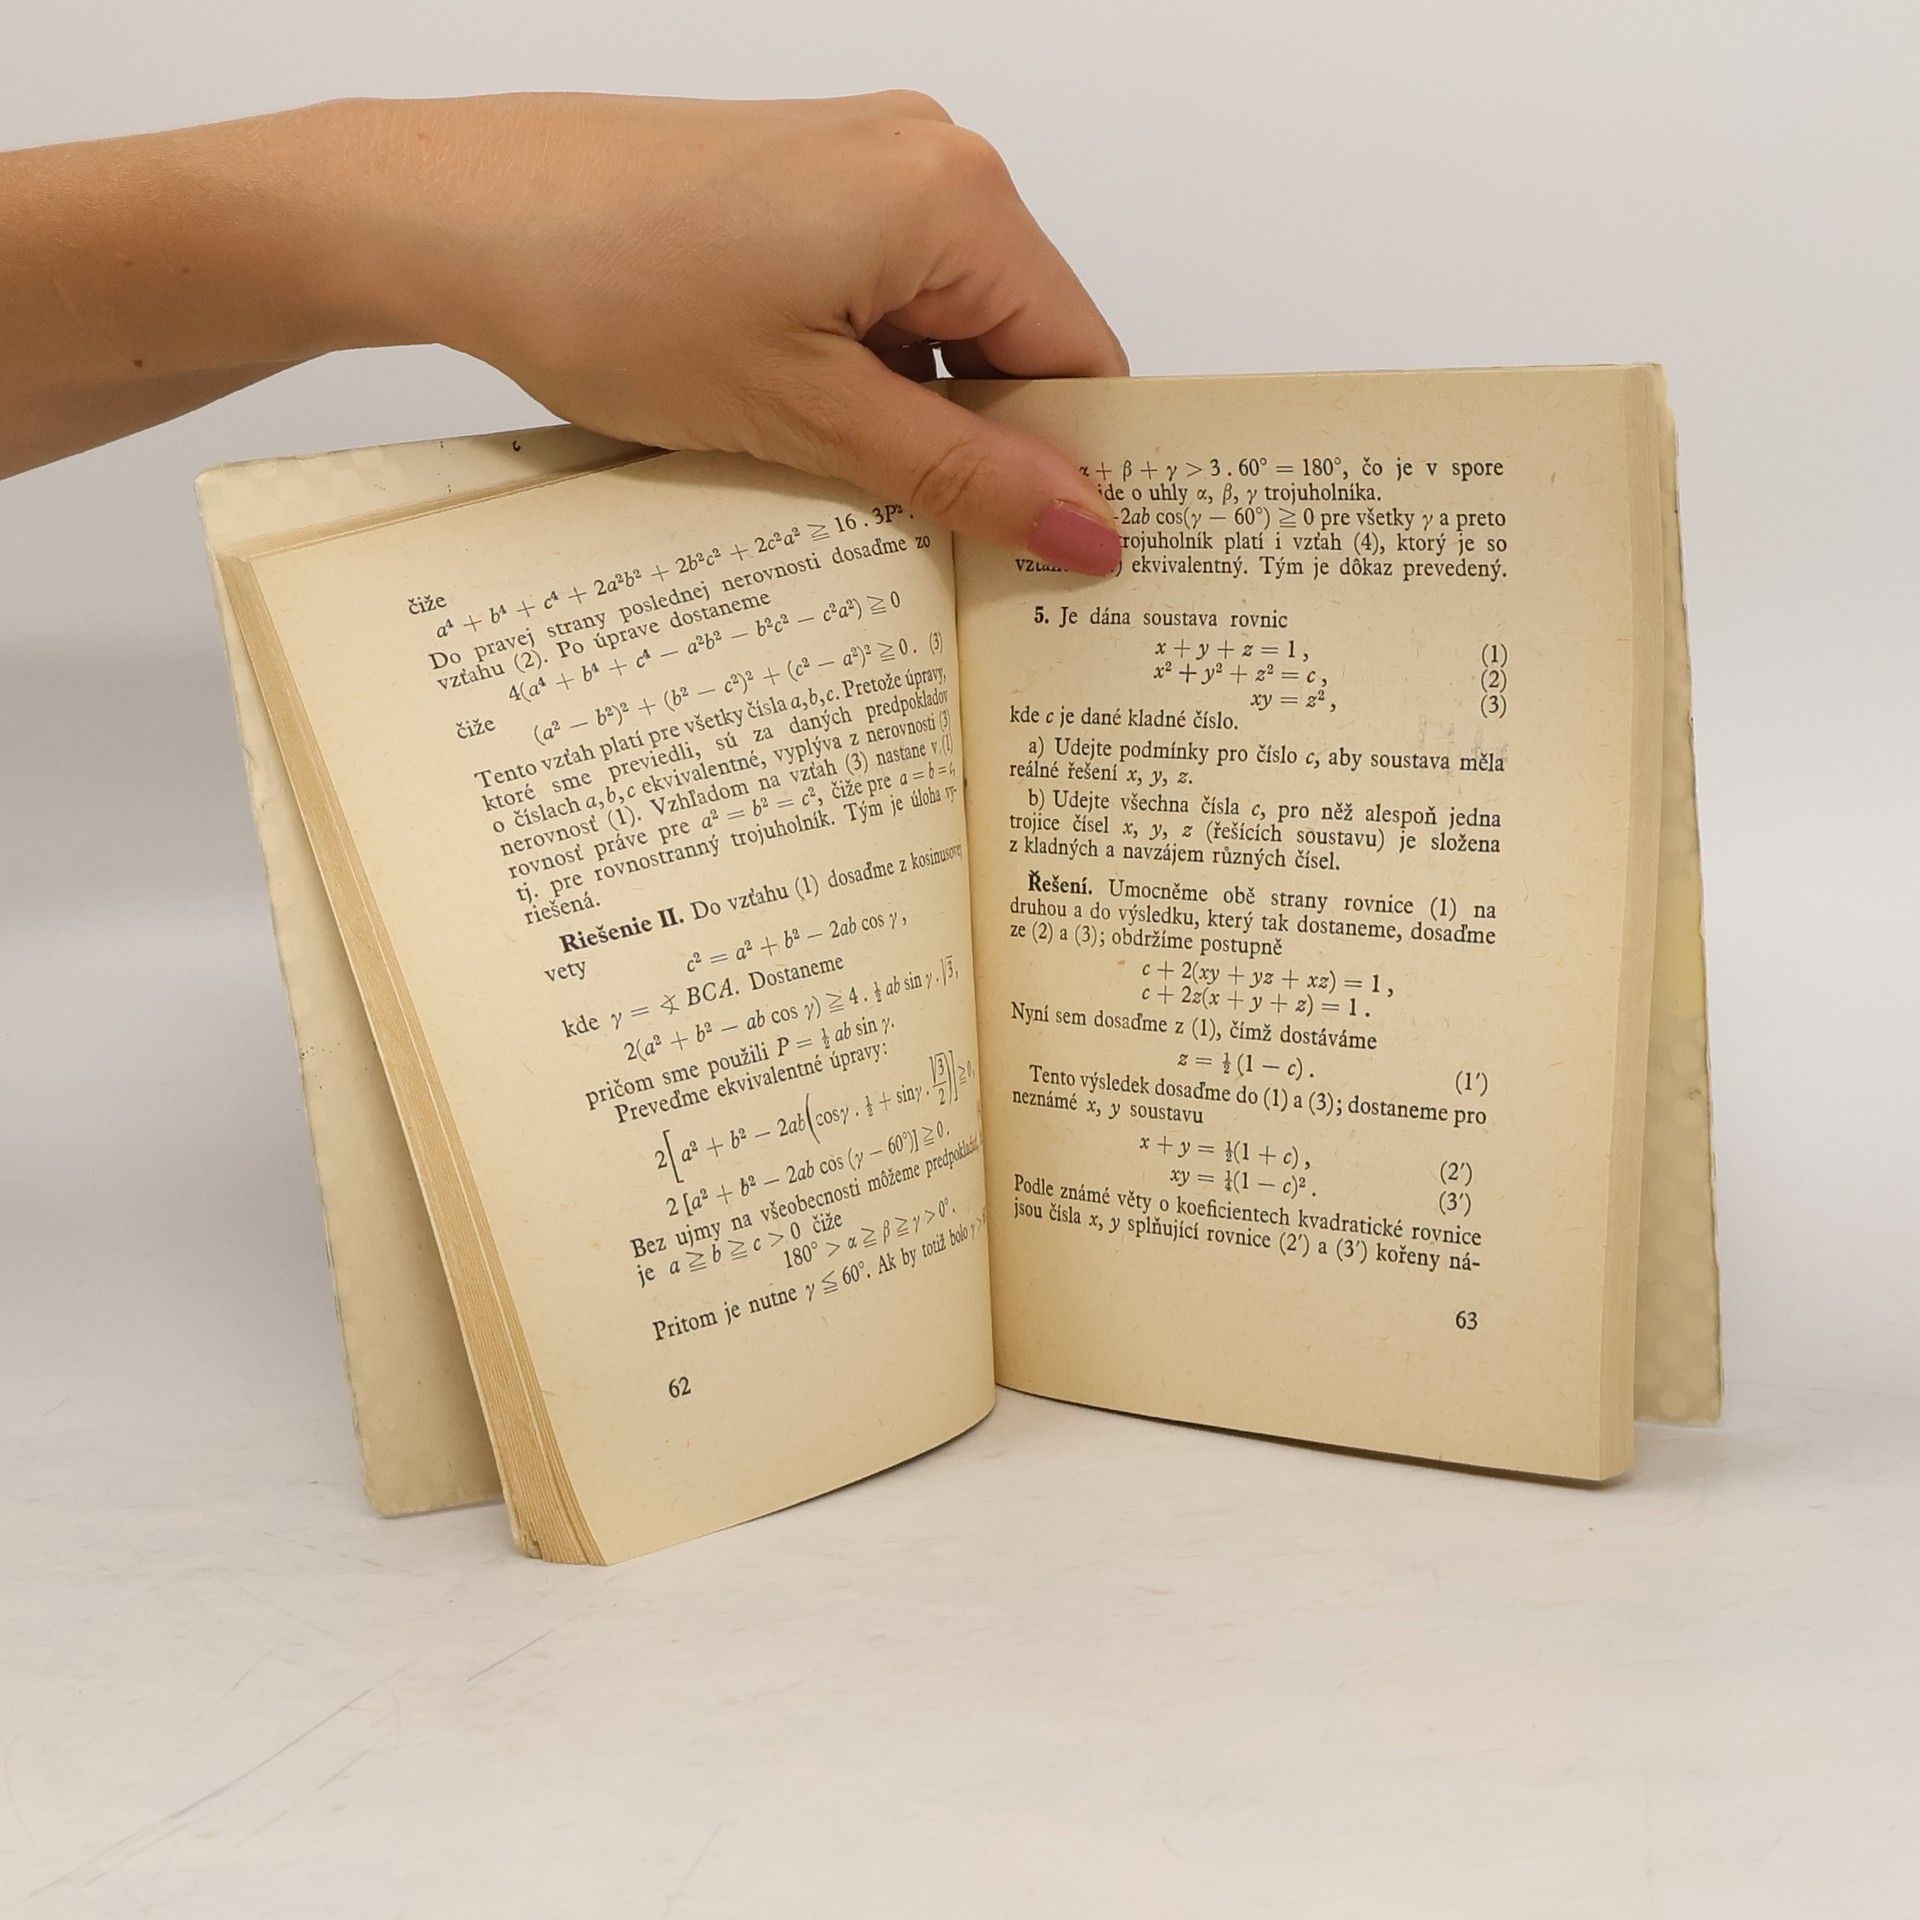 čiže
a⁴ + b⁴ + c⁴ + 2a²b² + 2b²c² + 2c²a² ≧ 16 . 3P² .
Do pravej strany poslednej nerovnosti dosaďme zo
vzťahu (2). Po úprave dostaneme
4(a⁴ + b⁴ + c⁴ − a²b² − b²c² − c²a²) ≧ 0
čiže
(a² − b²)² + (b² − c²)² + (c² − a²)² ≧ 0. (3)
Tento vzťah platí pre všetky čísla a, b, c. Pretože úpravy,
ktoré sme previedli, sú za daných predpokladov
o číslach a, b, c ekvivalentné, vyplýva z nerovnosti (3)
nerovnosť (1). Vzhľadom na vzťah (3) nastane v (1)
rovnosť práve pre a² = b² = c², čiže pre a = b = c,
tj. pre rovnostranný trojuholník. Tým je úloha vy-
riešená.
Riešenie II. Do vzťahu (1) dosaďme z kosinusovej
vety
c² = a² + b² − 2ab cos γ ,
kde γ = ∢ BCA. Dostaneme
2(a² + b² − ab cos γ) ≧ 4 . ½ ab sin γ . √3,
pričom sme použili P = ½ ab sin γ.
Preveďme ekvivalentné úpravy:
2[a² + b² − 2ab(cosγ . ½ + sinγ . √3/2)] ≧ 0,
2 [a² + b² − 2ab cos (γ − 60°)] ≧ 0.
Bez ujmy na všeobecnosti môžeme
je a ≧ b ≧ c > 0 čiže
180° > α ≧ β ≧ γ > 0°.
Pritom je nutne γ ≦ 60°. Ak by totiž bolo γ >
62
α + β + γ > 3 . 60° = 180°, čo je v spore
ide o uhly α, β, γ trojuholníka.
2ab cos(γ − 60°) ≧ 0 pre všetky γ a preto
trojuholník platí i vzťah (4), ktorý je so
ekvivalentný. Tým je dôkaz prevedený.
5. Je dána soustava rovnic
x + y + z = 1 , (1)
x² + y² + z² = c , (2)
xy = z² , (3)
kde c je dané kladné číslo.
a) Udejte podmínky pro číslo c, aby soustava měla
reálné řešení x, y, z.
b) Udejte všechna čísla c, pro něž alespoň jedna
trojice čísel x, y, z (řešících soustavu) je složena
z kladných a navzájem různých čísel.
Řešení. Umocněme obě strany rovnice (1) na
druhou a do výsledku, který tak dostaneme, dosaďme
ze (2) a (3); obdržíme postupně
c + 2(xy + yz + xz) = 1 ,
c + 2z(x + y + z) = 1 .
Nyní sem dosaďme z (1), čímž dostáváme
z = ½ (1 − c) . (1′)
Tento výsledek dosaďme do (1) a (3); dostaneme pro
neznámé x, y soustavu
x + y = ½(1 + c) , (2′)
xy = ¼(1 − c)² . (3′)
Podle známé věty o koeficientech kvadratické rovnice
jsou čísla x, y splňující rovnice (2′) a (3′) kořeny ná-
63